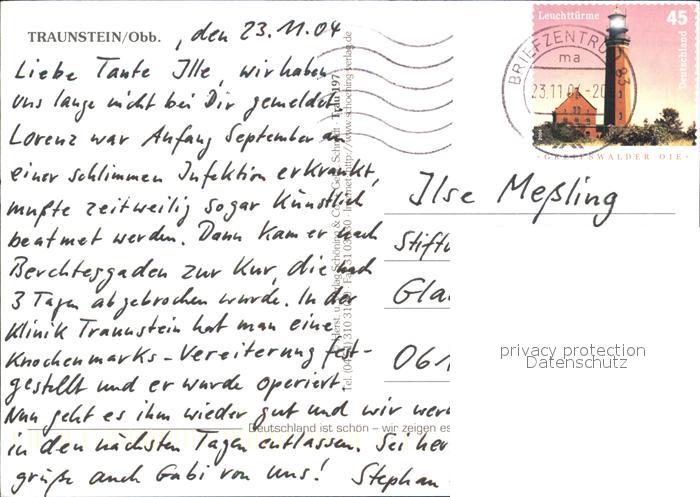 TRAUNSTEIN/Obb. , den 23.11.04
Liebe Tante Ille, wir haben
uns lange nicht bei Dir gemeldet.
Lorenz war Anfang September an
einer schlimmen Infektion erkrankt,
mußte zeitweilig sogar künstlich
beatmet werden. Dann kam er nach
Berchtesgaden zur Kur, die nach
3 Tagen abgebrochen wurde. In der
Klinik Traunstein hat man eine
Knochenmarks-Vereiterung fest-
gestellt und er wurde operiert.
Nun geht es ihm wieder gut und wir wer
Deutschland ist schön – wir zeigen es
in den nächsten Tagen entlassen. Sei her
grüße auch Gabi von uns! Stephan
Trau 197
http://www.schoening-verlag.de
Leuchttürme 45
Deutschland
GREIFSWALDER OIE
BRIEFZENTRUM 83
ma
23.11.04-20
Ilse Meßling
Stift
Gla
061
privacy protection
Datenschutz